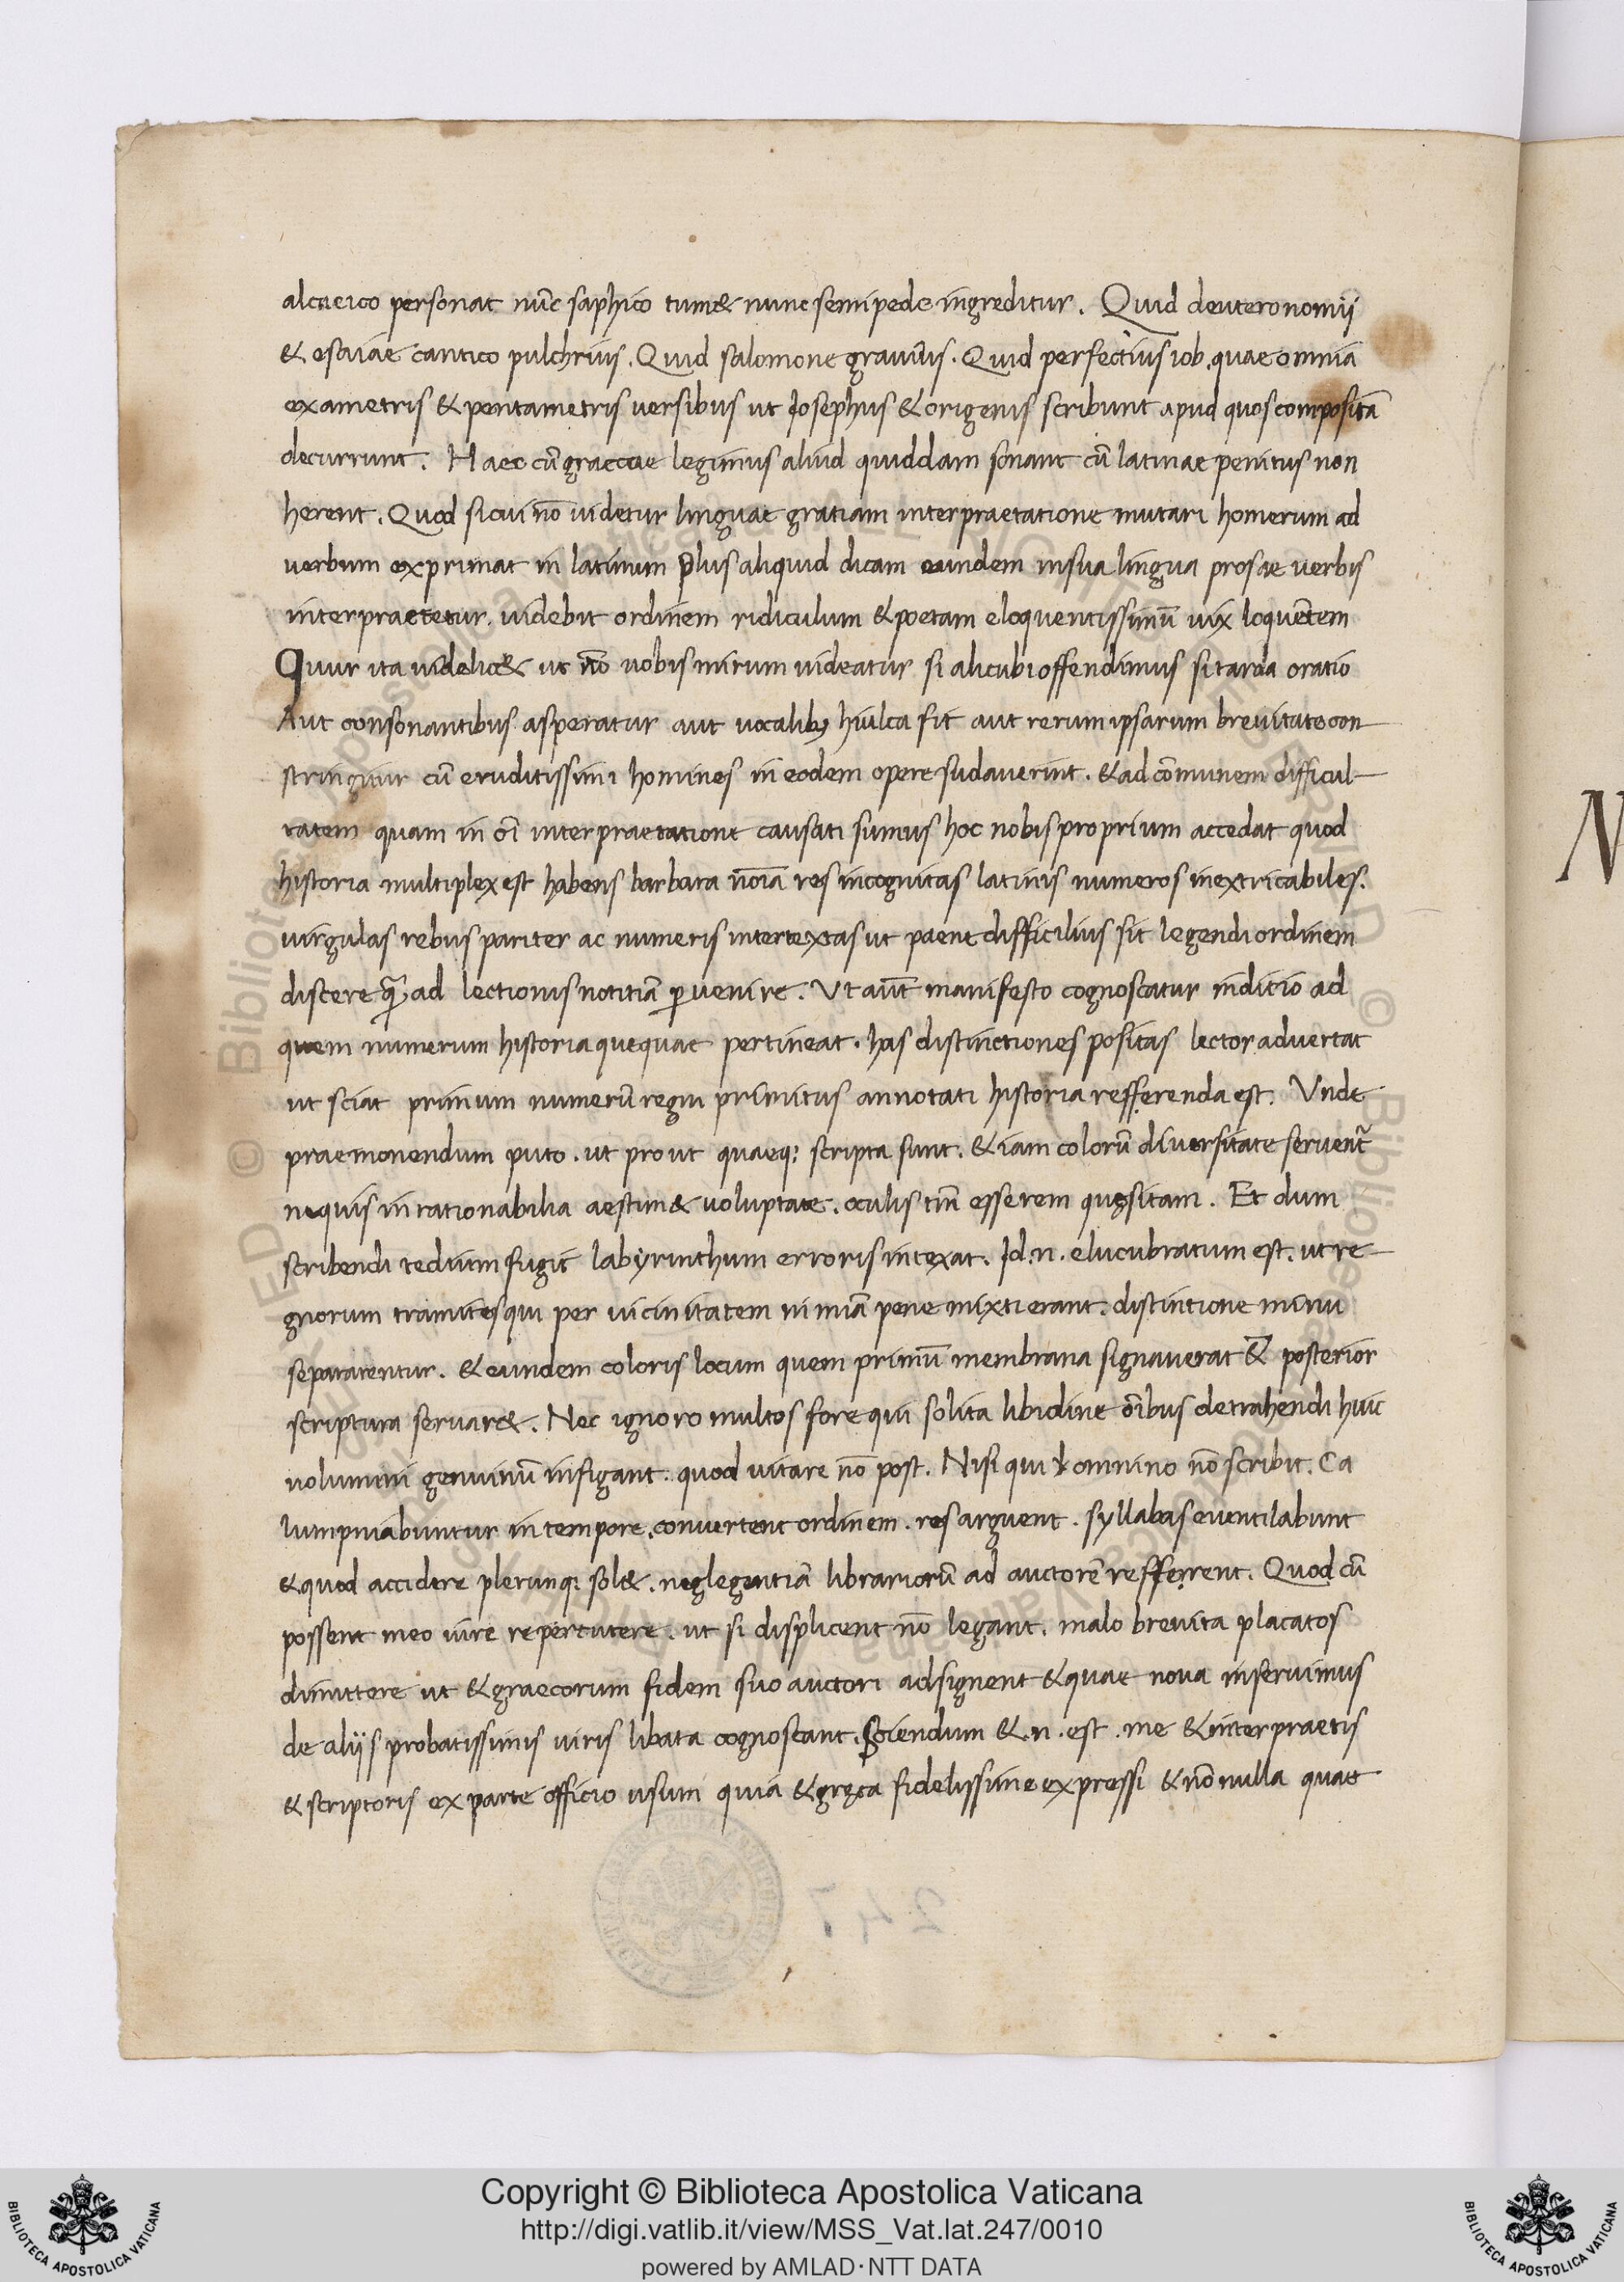 alcaeico personat nūc saphico tum& nunc semipede ingreditur. Quid deuteronomii
& esaiae cantico pulchrius. Quid salomone grauius. Quid perfectius iob. quae omnia
exametris & pentametris uersibus ut Iosephus & origenis scribunt apud quos compositā
decurrunt. Haec cū graecae legimus aliud quiddam sonant cū latinae penitus non
herent. Quod si cui nō uidetur linguae gratiam interpraetatione mutari homerum ad
uerbum exprimat in latinum plus aliquid dicam eundem in sua lingua prosae uerbis
interpraetetur. uidebit ordinem ridiculum & poetam eloquentissimū uix loquētem
Quur ita uidelic& ut nō uobis mirum uideatur si alicubi offendimus si tarda oratio
Aut consonantibus asperatur aut uocalibꝫ hiulca fit aut rerum ipsarum breuitate con
stringitur cū eruditissimi homines in eodem opere sudauerint. & ad cōmunem difficul
tatem quam in oī interpraetatione causati sumus hoc nobis proprium accedat quod
historia multiplex est habens barbara noīa res incognitas latinis numeros inextricabiles.
uirgulas rebus pariter ac numeris intertextas ut paene difficilius sit legendi ordinem
discere ꝙ̄ ad lectionis notitiā ꝑuenire. Ut aūt manifesto cognoscatur inditio ad
quem numerum historia quequae pertineat. has distinctiones positas lector aduertat
ut sciat primum numerū regni primitus annotati historia refferenda est. Vnde
praemonendum puto. ut prout quaeq; scripta sunt. & iam colorū diuersitate seruent᷑
ne quis inrationabilia aestim& uoluptate. oculis tm̄ esse rem quęsitam. Et dum
scribendi tedium fugit labyrinthum erroris intexat. Id. n. elucubratum est. ut re
gnorum tramites qui per uicinitatem nimiā pene mixti erant. distintione minii
separarentur. & eundem coloris locum quem primū membrana signauerat &̄ posterior
scriptura seruar&. Nec ignoro multos fore qui solita libidine oībus detrahendi huic
uolumini genuinū infigant. quod uitare nō post. Nisi qui omnino nō scribit. Ca
lumpniabuntur in tempore. conuertent ordinem. res arguent. syllabas euentilabunt
& quod accidere plerunq; sol&. neglegentiā librariorū ad auctorē refferrent. Quod cū
possent meo iure repercutere. ut si displicent nō legant. malo breuita placatos
dimittere ut & graecorum fidem suo auctori adsignent & quae noua inseruimus
de aliis probatissimis uiris libata cognoscant. Sciendum &. n. est. me & interpraetis
& scriptoris ex parte officio usum quia & gręca fidelissime expressi & nōnulla quae
247
N
Copyright © Biblioteca Apostolica Vaticana
http://digi.vatlib.it/view/MSS_Vat.lat.247/0010
powered by AMLAD·NTT DATA
BIBLIOTECA APOSTOLICA VATICANA
BIBLIOTECA APOSTOLICA VATICANA